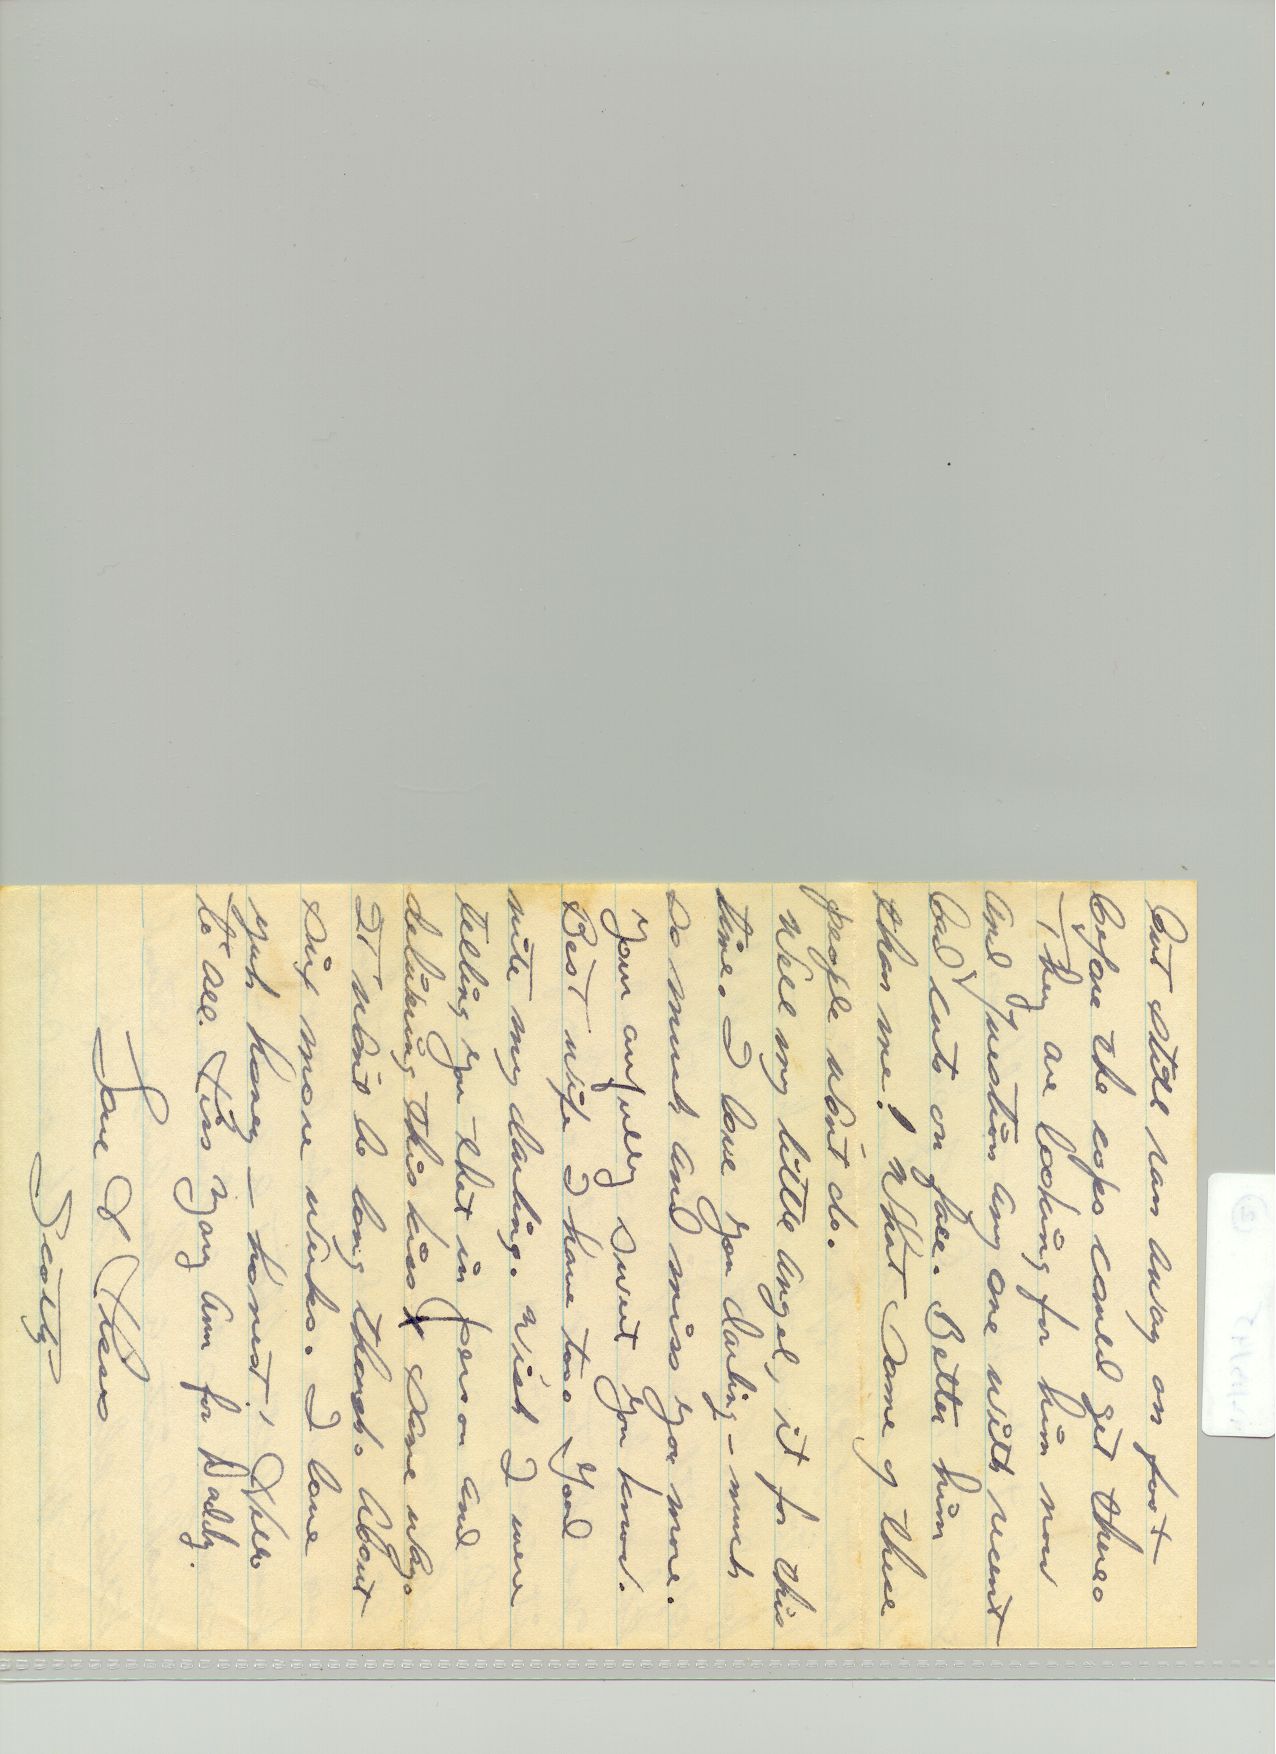 but still ran away on foot
before the cops could get there.
They are looking for him now
and question any one with recent
bad cuts on face. Better him
than me! What some of these
people won't do.
Well my little angel, it for this
time. I love you darling - much
so much and miss you more.
Your awfully sweet you know.
Best wife I have too. Good
nite my darling. Wish I were
telling you that in person and
delivering this kiss X same way.
It won't be long though. About
six more weeks. I love
yuh honey - honest! Hello
to all. Kiss Mary Ann for Daddy.
Love & Kisses
Scotty